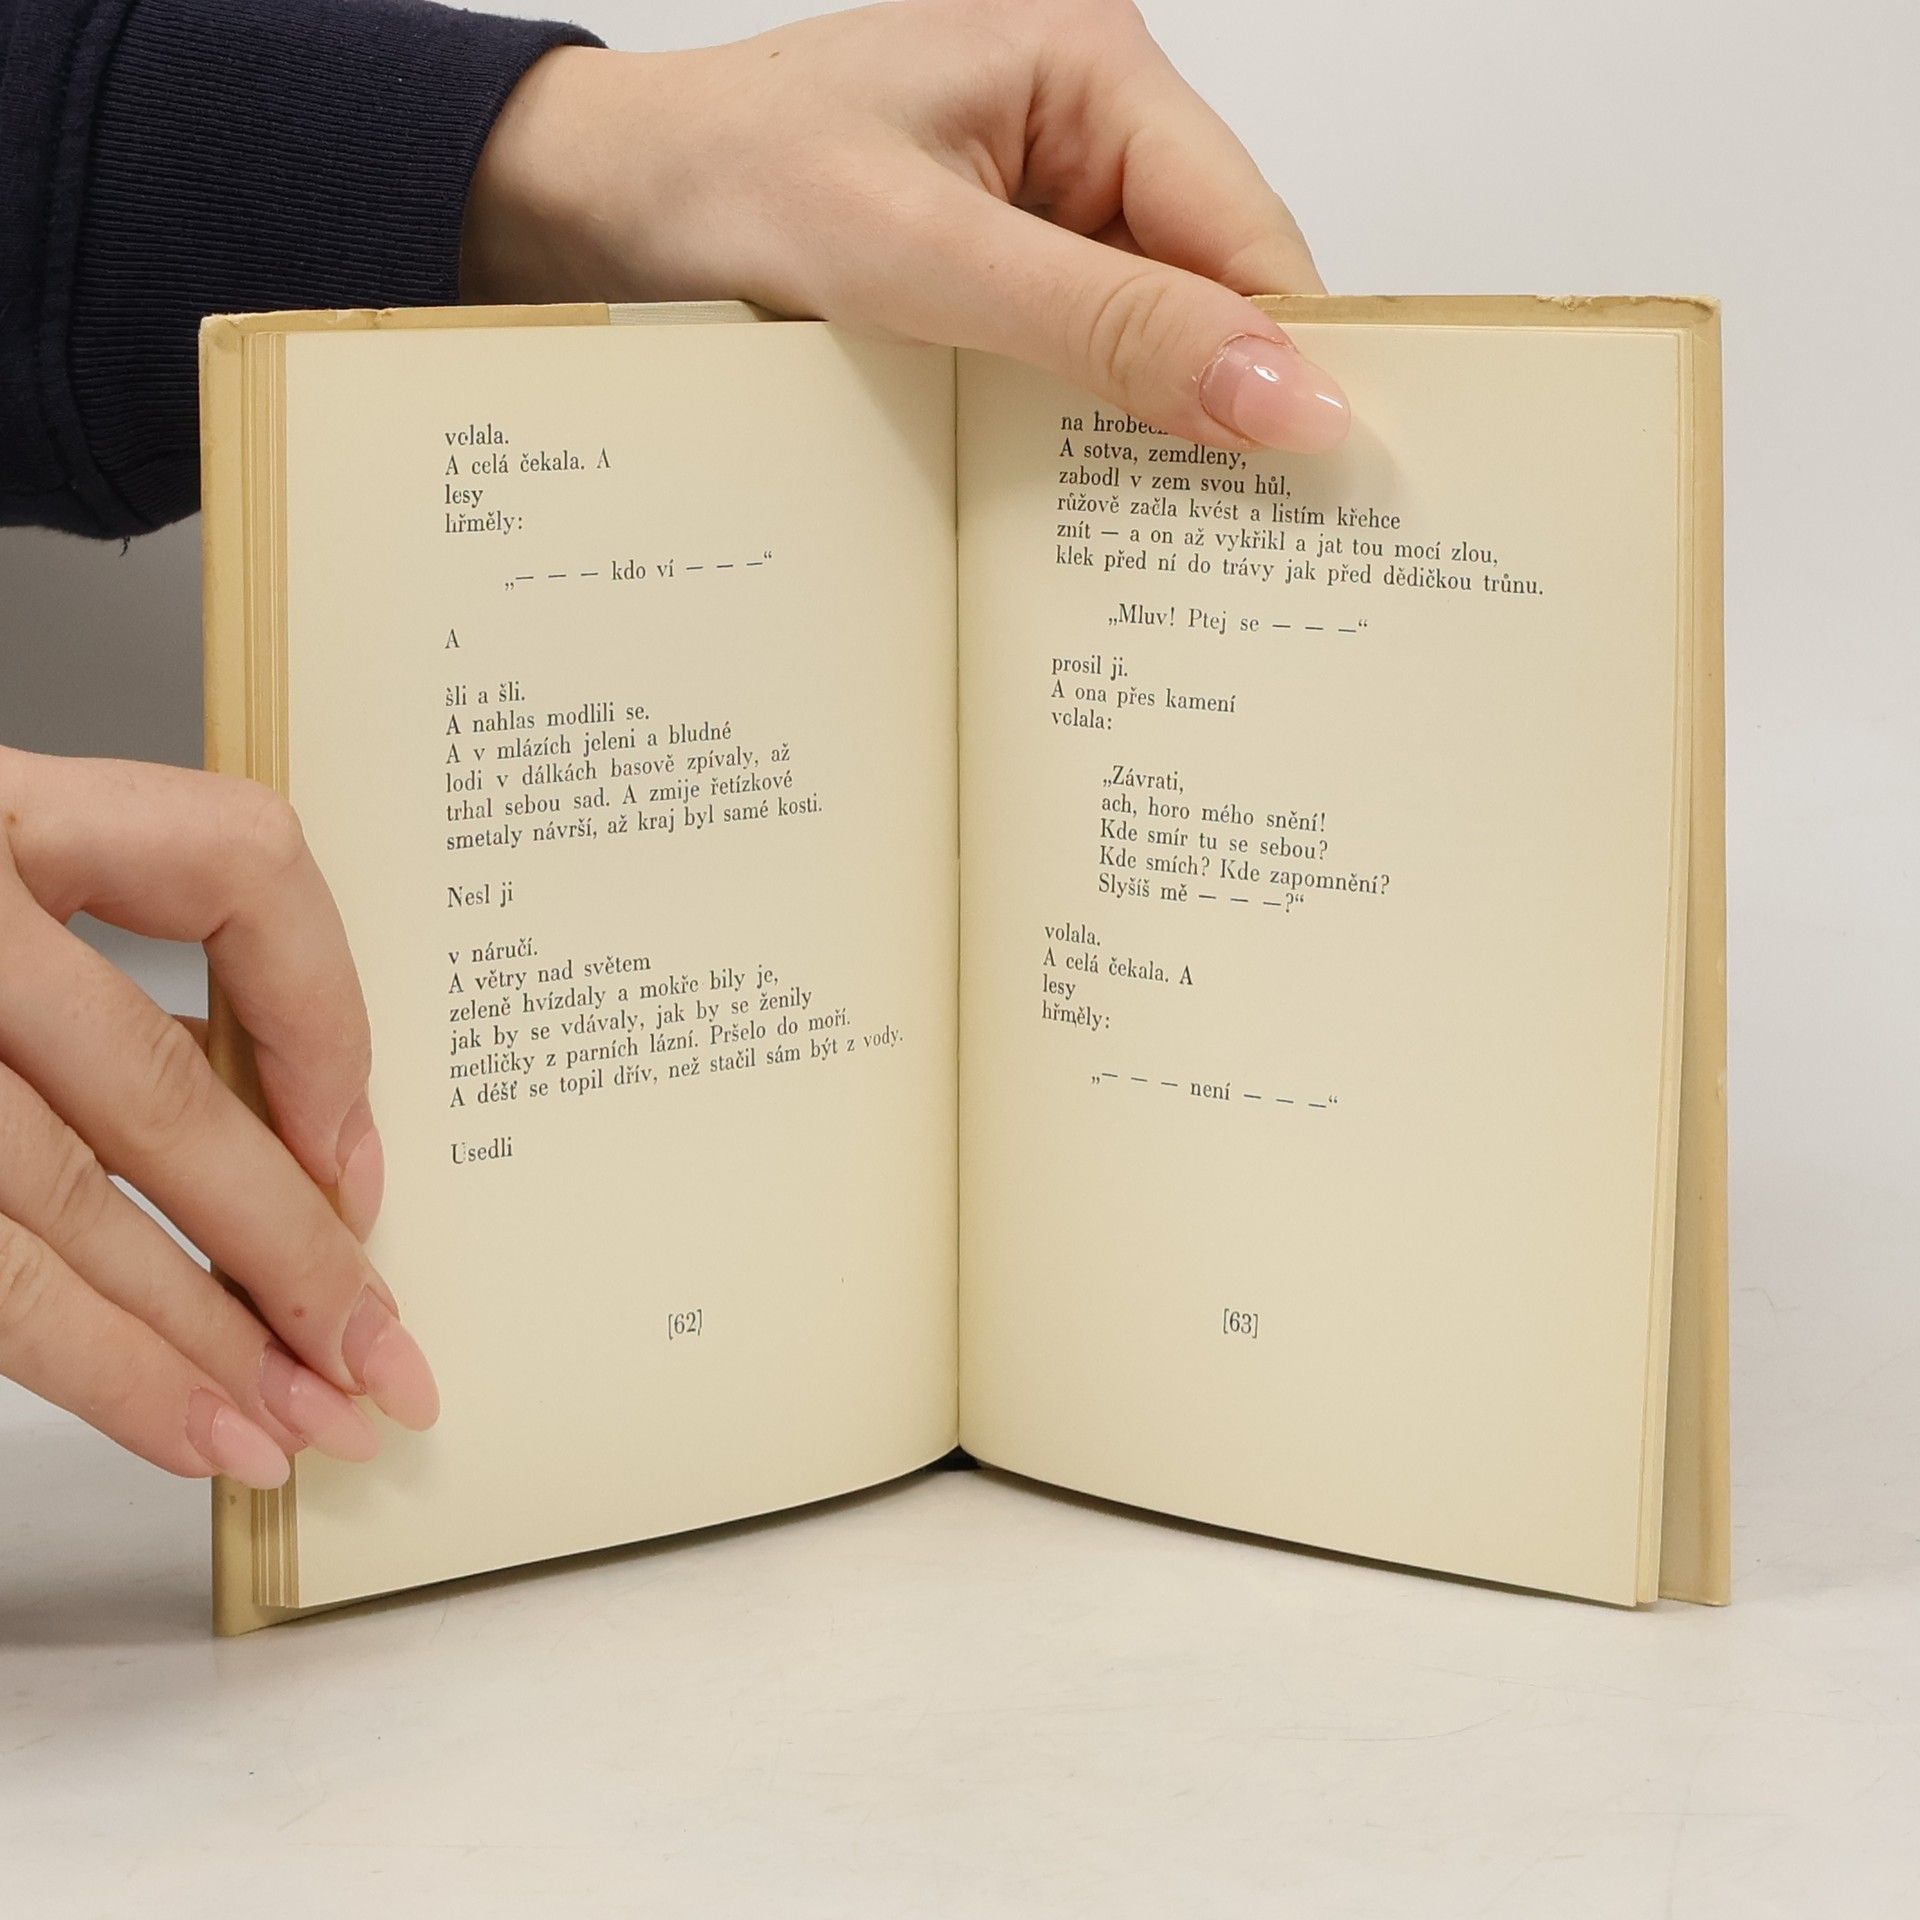 volala.
A celá čekala. A
lesy
hřměly:
„— — — kdo ví — — —“
A
šli a šli.
A nahlas modlili se.
A v mlázích jeleni a bludné
lodi v dálkách basově zpívaly, až
trhal sebou sad. A zmije řetízkové
smetaly návrší, až kraj byl samé kosti.
Nesl ji
v náručí.
A větry nad světem
zeleně hvízdaly a mokře bily je,
jak by se vdávaly, jak by se ženily
metličky z parních lázní. Pršelo do moří.
A déšť se topil dřív, než stačil sám být z vody.
Usedli
[62]
na
A sotva, zemdlený,
zabodl v zem svou hůl,
růžově začla kvést a listím křehce
znít — a on až vykřikl a jat tou mocí zlou,
klek před ní do trávy jak před dědičkou trůnu.
„Mluv! Ptej se — — —“
prosil ji.
A ona přes kamení
volala:
„Závrati,
ach, horo mého snění!
Kde smír tu se sebou?
Kde smích? Kde zapomnění?
Slyšíš mě — — —?“
volala.
A celá čekala. A
lesy
hřměly:
„— — — není — — —“
[63]